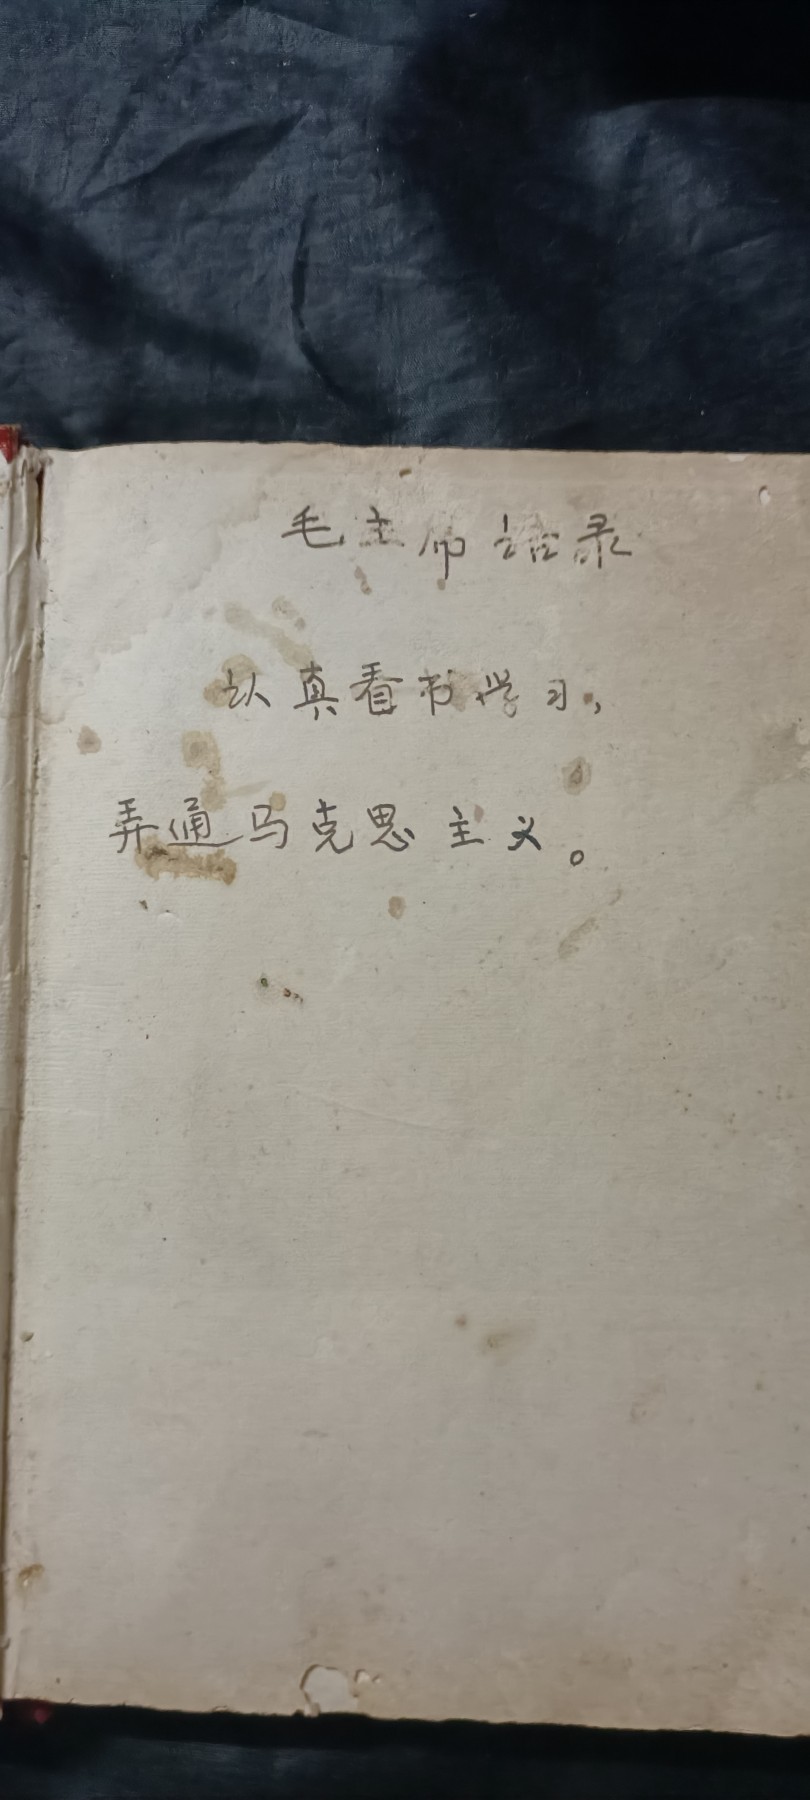 毛主席语录
认真看书学习,
弄通马克思主义。